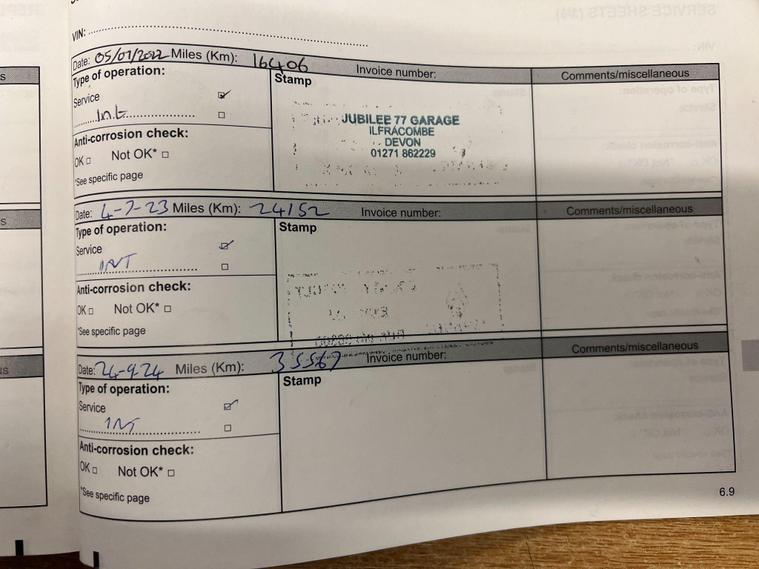 VIN:
Date: 05/07/2022 Miles (Km): 16406 Invoice number: Comments/miscellaneous
Type of operation: Stamp
Service
Int
Anti-corrosion check:
OK Not OK*
*See specific page
JUBILEE 77 GARAGE
ILFRACOMBE
DEVON
01271 862229
Date: 4-7-23 Miles (Km): 24152 Invoice number: Comments/miscellaneous
Type of operation: Stamp
Service
INT
Anti-corrosion check:
OK Not OK*
*See specific page
Date: 24-9-24 Miles (Km): 35567 Invoice number: Comments/miscellaneous
Type of operation: Stamp
Service
INT
Anti-corrosion check:
OK Not OK*
*See specific page
6.9